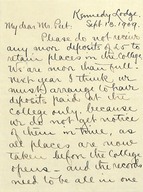 Kennedy Lodge
Sept 10. 1909.
My dear Mr. Peet.
Please do not receive
any more deposits of 25 to
retain places in the College.
We are more than full
next year I think. We
must arrange to have
deposits paid at the
College only because
we do not get notice
of them in time, as
all places are now
taken before the College
opens - and the records
need to be all in one